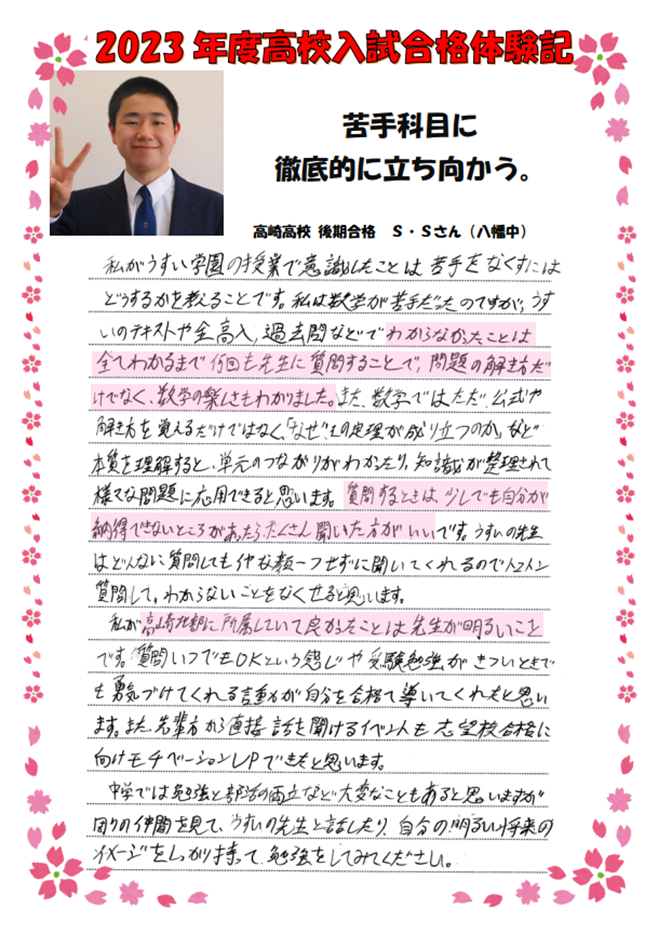 2023年度高校入試合格体験記
苦手科目に
徹底的に立ち向かう。
高崎高校 後期合格 S・Sさん（八幡中）
私がうすい学園の授業で意識したことは 苦手をなくすには
どうするかを考えることです。私は数学が苦手だったのですが、うす
いのテキストや全高入、過去問などでわからなかったことは
全てわかるまで何回も先生に質問することで、問題の解き方だ
けでなく、数学の楽しさもわかりました。また、数学ではただ、公式や
解き方を覚えるだけではなく、「なぜこの定理が成り立つのか」など
本質を理解すると、単元のつながりがわかったり、知識が整理されて
様々な問題に応用できると思います。質問するときは、少しでも自分が
納得できないところがあったら、たくさん聞いた方がいいです。うすいの先生
はどんなに質問してもイヤな顔一つせずに聞いてくれるのでトコトン
質問して、わからないことをなくせると思います。
私が高崎北部に所属していて良かったことは先生が明るいこと
です。質問いつでもOKという感じや受験勉強がきついときで
も勇気づけてくれる言動が自分を合格へ導いてくれたと思い
ます。また、先輩方から直接話を聞けるイベントも志望校合格に
向けモチベーションUPできたと思います。
中学では勉強と部活の両立など大変なこともあると思いますが
周りの仲間を見て、うすいの先生と話したり、自分の明るい将来の
イメージをしっかり持って、勉強をしてみてください。